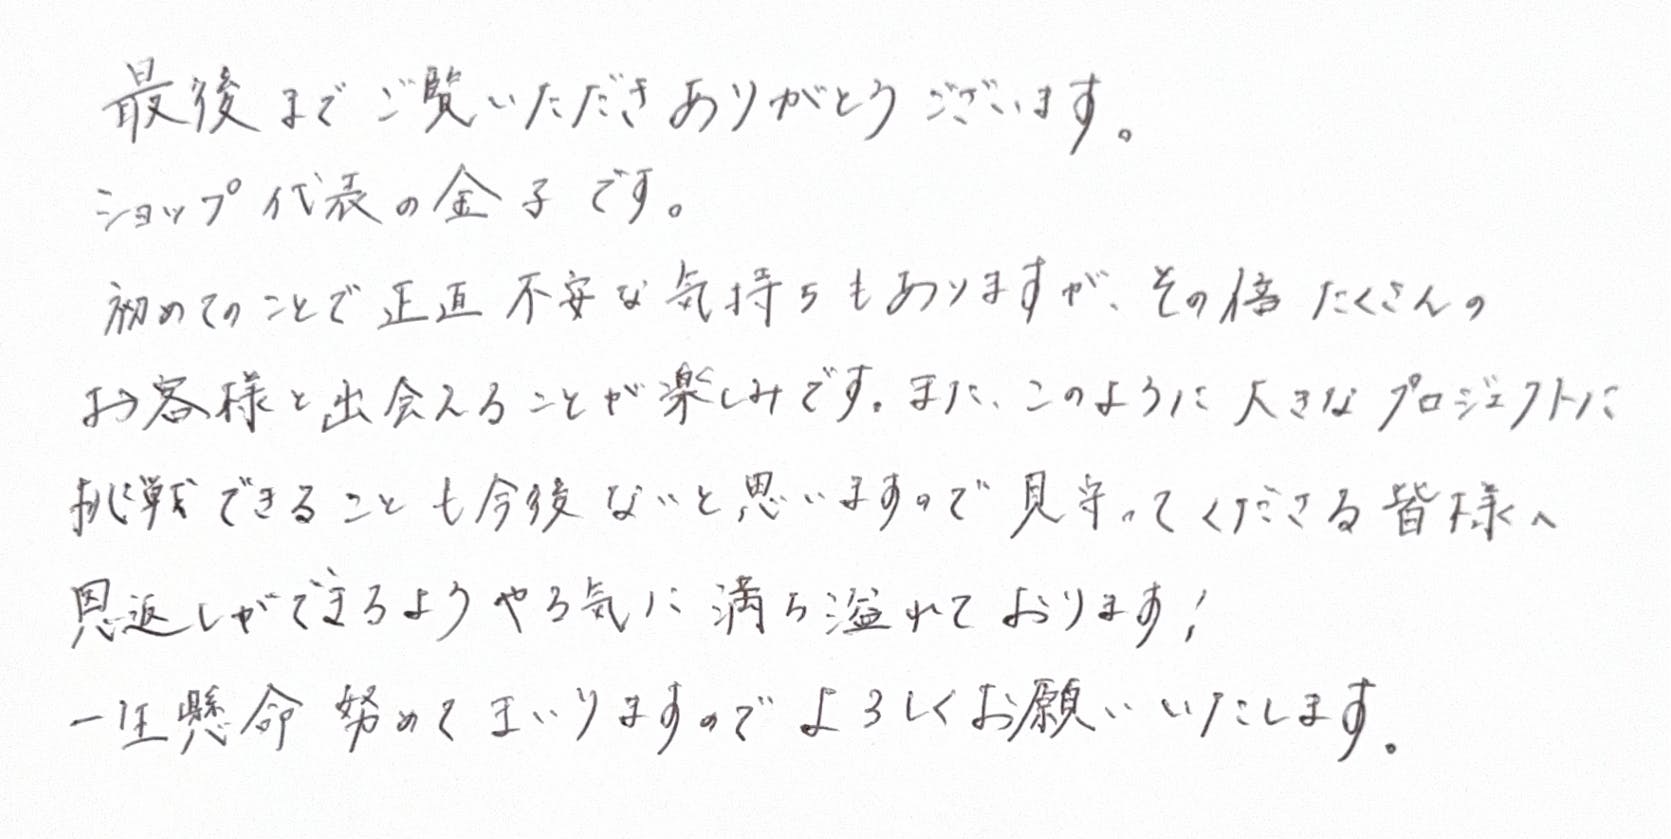 最後までご覧いただきありがとうございます。
ショップ代表の金子です。
初めてのことで正直不安な気持ちもありますが、その倍たくさんの
お客様と出会えることが楽しみです。また、このように大きなプロジェクトに
挑戦できることも今後ないと思いますので見守ってくださる皆様へ
恩返しができるようやる気に満ち溢れております!
一生懸命努めてまいりますのでよろしくお願いいたします。